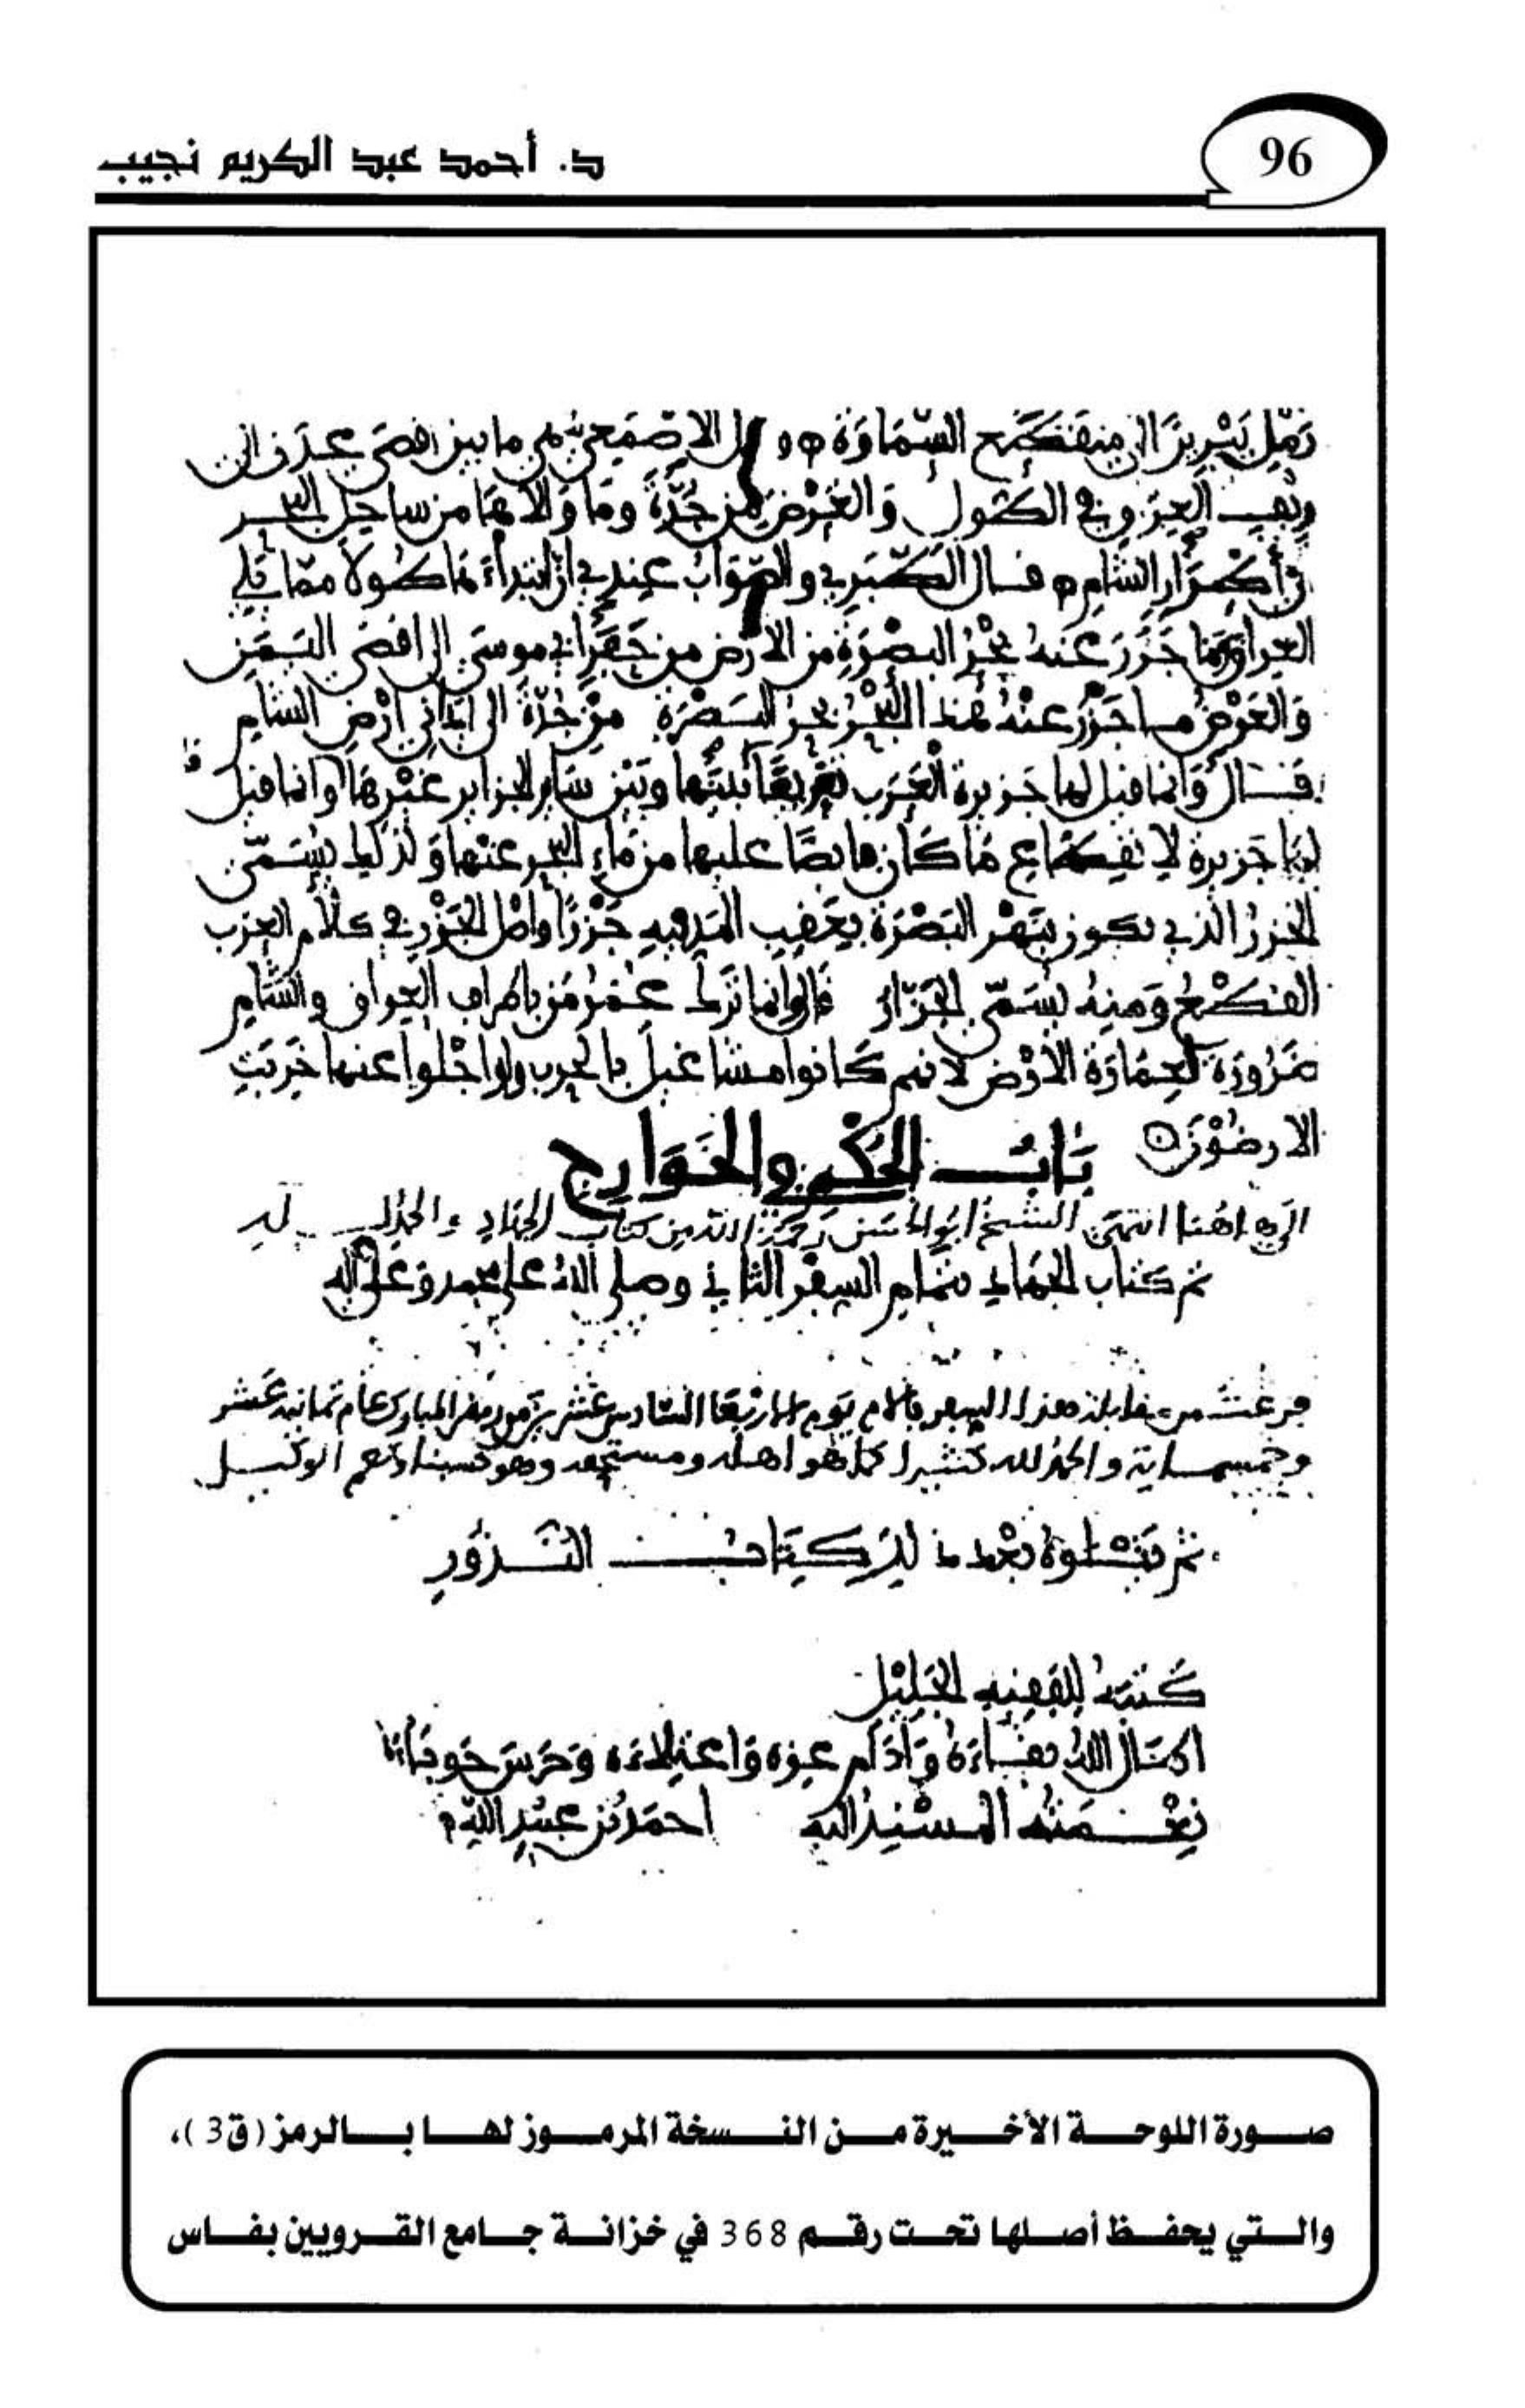 96
د. أحمد عبد الكريم نجيب
رمل يبرين الى منقطع السماوة قال الاصمعي هي ما بين اقصى عدن ابين
وريف العراق في الطول والعرض من جدة وما والاها من ساحل البحر
الى أطرار الشام قال الطبري والصواب عندي ان ابتداءها طولا مما يلي
العراق مما جزر عنه بحر البصرة من الارض من حفر أبي موسى الى اقصى اليمن
والعرض ما جزر عنه هذا البحر بحر البصرة من جدة الى أداني ارض الشام
قال وانما قيل لها جزيرة العرب تفريقا بينها وبين سائر الجزاير غيرها وانما قيل
لها جزيرة لانقطاع ما كان فايضا عليها من ماء البحر عنها ولذلك يسمى
الجزر الذي يكون بنهر البصرة بعقيب المد فيه جزرا واصل الجزر في كلام العرب
القطع ومنه يسمى الجزار قالوا انما ترك عمر من باطراف العراق والشام
ضرورة لعمارة الارض لانهم كانوا مشاغيل بالحرب ولو اجلوا عنها خربت
الارضون
باب الحكم في الخوارج
الى هاهنا انتهى الشيخ ابو الحسن رحمه الله من كتاب الجهاد والحمد لله
تم كتاب الجهاد بتمام السفر الثاني وصلى الله على محمد وعلى آله
فرغت من مقابلة هذا السفر بالام يوم الاربعا السادس عشر من رمضان المبارك عام ثمانية عشر
وخمسماية والحمد لله كثيرا كما هو اهله ومستحقه وهو حسبنا ونعم الوكيل
ثم يتلوه بعد كتاب النذور
كتبه للفقيه الجليل
اطال الله بقاءه وادام عزه واعتلاءه وحرس حوباءه
نعمته المسند اليه احمد بن عبد الله
صورة اللوحة الأخيرة من النسخة المرموز لها بالرمز (ق3)،
والتي يحفظ أصلها تحت رقم 368 في خزانة جامع القرويين بفاس